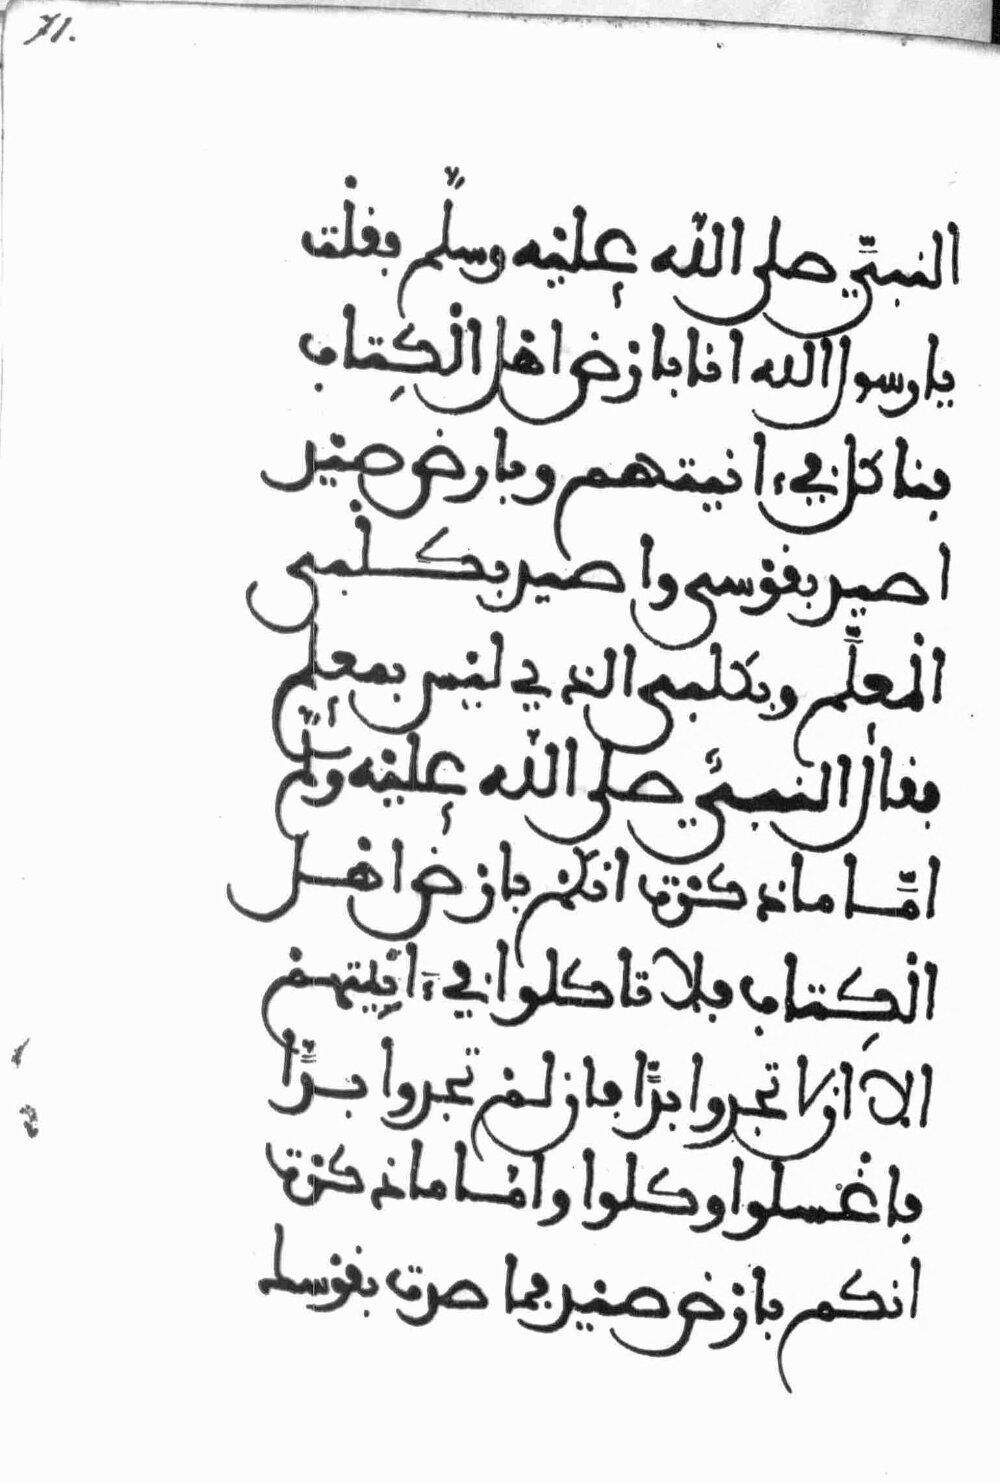 71.
النبيّ صلى الله عليه وسلّم فقلت
يا رسول الله انا بارض اهل الكتاب
فنا كل في ءانيتهم وبارض صيد
اصيد بقوسى واصيد بكلبى
المعلّم وبكلبى الذي ليس بمعلم
فقال النبيّ صلى الله عليه وسلّم
امّا ما ذكرت انكم بارض اهل
الكتاب فلا تاكلوا في ءانيتهم
الا ان لا تجدوا بدّا فان لم تجدوا بدّا
فاغسلوا وكلوا وامّا ما ذكرت
انكم بارض صيد فما صدت بقوسك